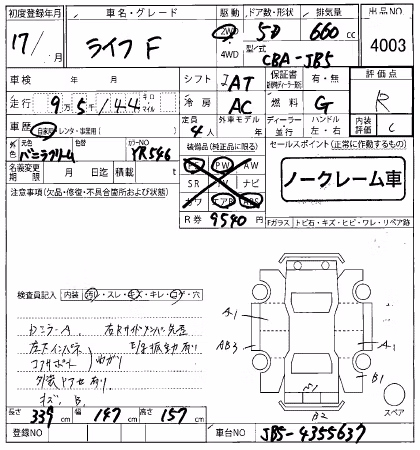 初度登録年月 車名・グレード 駆動 ドア数・形状 排気量 出品NO
17/ 月 ライフ F 2WD 4WD 5D 660 cc 4003
型/式 CBA-JB5
車検 年 月 シフト IAT 保証書 有・無 評価点
走行 9万5千144 キロ マイル 冷房 AC 燃料 G R
車歴 自家用・レンタ・事業用( ) 定員 4人 外車モデル 年 ディーラー 並行 ハンドル 左・右 内装評価 C
元色 バニラクリーム 色替 カラーNO YR546 装備品(純正品に限る) セールスポイント(正常に作動するもの)
名義変更期限 月 日迄 積載 t PS PW
SR TV ナビ ノークレーム車
注意事項(欠品・修復・不具合箇所および状態) カワ エアB ABS
R券 9540 円 Fガラス トビ石・キズ・ヒビ・ワレ・リペア跡
検査員記入 内装 汚れ・スレ・キズ・キレ・コゲ・穴
DミラーA 右Rサイドメンバー
左右インパネ
コアサポート 曲がり
外装 有り
キズ、B
A1
AB3
A1
B1
B2
スペア
長さ 339 cm 幅 147 cm 高さ 157 cm
登録NO 車台NO JB5-4355637